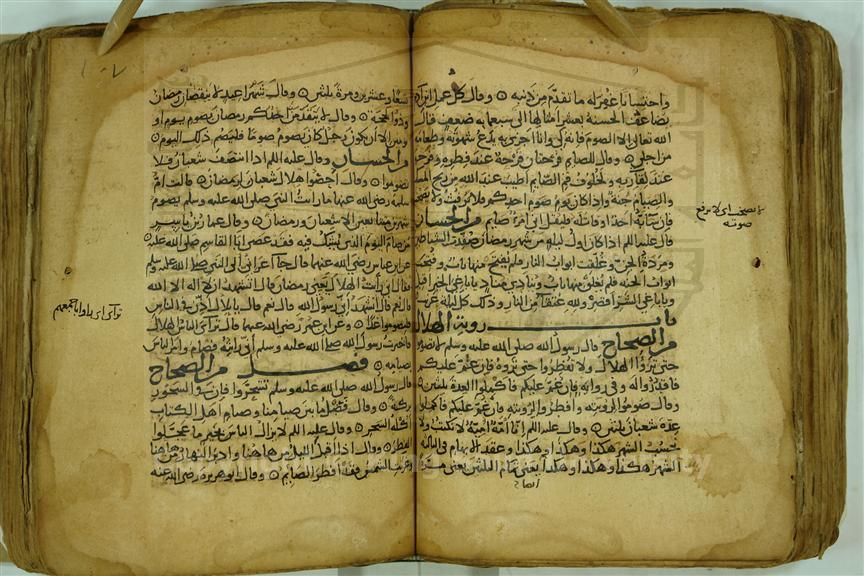 واحتسابا غفر له ما تقدم من ذنبه وقال كل عمل ابن آدم
يضاعف الحسنة بعشر أمثالها الى سبعمائة ضعف قال
الله تعالى الا الصوم فانه لي وانا اجزي به يدع شهوته وطعامه
من اجلي وقال للصايم فرحتان فرحة عند فطره وفرحة
عند لقاء ربه ولخلوف فم الصايم اطيب عند الله من ريح المسك
والصيام جنة واذا كان يوم صوم احدكم فلا يرفث ولا يصخب
فان سابه احد او قاتله فليقل اني امرؤ صايم من الحسان
قال عليه اللم اذا كان اول ليلة من شهر رمضان صفدت الشياطين
ومردة الجن وغلقت ابواب النار فلم يفتح منها باب وفتحت
ابواب الجنة فلم يغلق منها باب وينادي مناد يا باغي الخير اقبل
ويا باغي الشر اقصر ولله عتقاء من النار وذلك كل ليلة غريب
باب روية الهلال
من الصحاح قال رسول الله صلى الله عليه وسلم لا تصوموا
حتى تروا الهلال ولا تفطروا حتى تروه فان غم عليكم
فاقدروا له وفي رواية فان غم عليكم فاكملوا العدة ثلثين
وقال صوموا لرويته وافطروا لرويته فان غم عليكم فاكملوا
عدة شعبان ثلثين وقال عليه اللم انا امة امية لا نكتب ولا
نحسب الشهر هكذا وهكذا وهكذا وعقد الابهام في الثالثة
الشهر هكذا وهكذا وهكذا يعني تمام الثلثين يعني مرة
لا يصخب اي لا يرفع
صوته
تسعا وعشرين ومرة ثلثين وقال شهرا عيد لا ينقصان رمضان
وذو الحجة وقال لا يتقدمن احدكم رمضان بصوم يوم او
يومين الا ان يكون رجل كان يصوم صوما فليصم ذلك اليوم
من الحسان وقال عليه اللم اذا انتصف شعبان فلا
تصوموا وقال احصوا هلال شعبان لرمضان قالت ام
سلمة رضي الله عنها ما رايت النبي صلى الله عليه وسلم يصوم
شهرين متتابعين الا شعبان ورمضان وقال عمار بن ياسر
من صام اليوم الذي يشك فيه فقد عصى ابا القاسم صلى الله عليه
عن ابن عباس رضي الله عنهما قال جا اعرابي الى النبي صلى الله عليه وسلم
فقال اني رايت الهلال يعني رمضان قال اتشهد ان لا اله الا الله
قال نعم قال اتشهد اني رسول الله قال نعم قال يا بلال اذن في الناس
فليصوموا غدا وعن ابن عمر رضي الله عنهما قال تراءى الناس الهلال
فاخبرت رسول الله صلى الله عليه وسلم اني رايته فصام وامر الناس
بصيامه فصل من الصحاح
قال رسول الله صلى الله عليه وسلم تسحروا فان في السحور
بركة وقال فصل ما بين صيامنا وصيام اهل الكتاب
اكلة السحر وقال عليه اللم لا يزال الناس بخير ما عجلوا
الفطر وقال اذا اقبل الليل من هاهنا وادبر النهار من هاهنا
وغربت الشمس فقد افطر الصايم وقال ابو هريرة رضي الله عنه